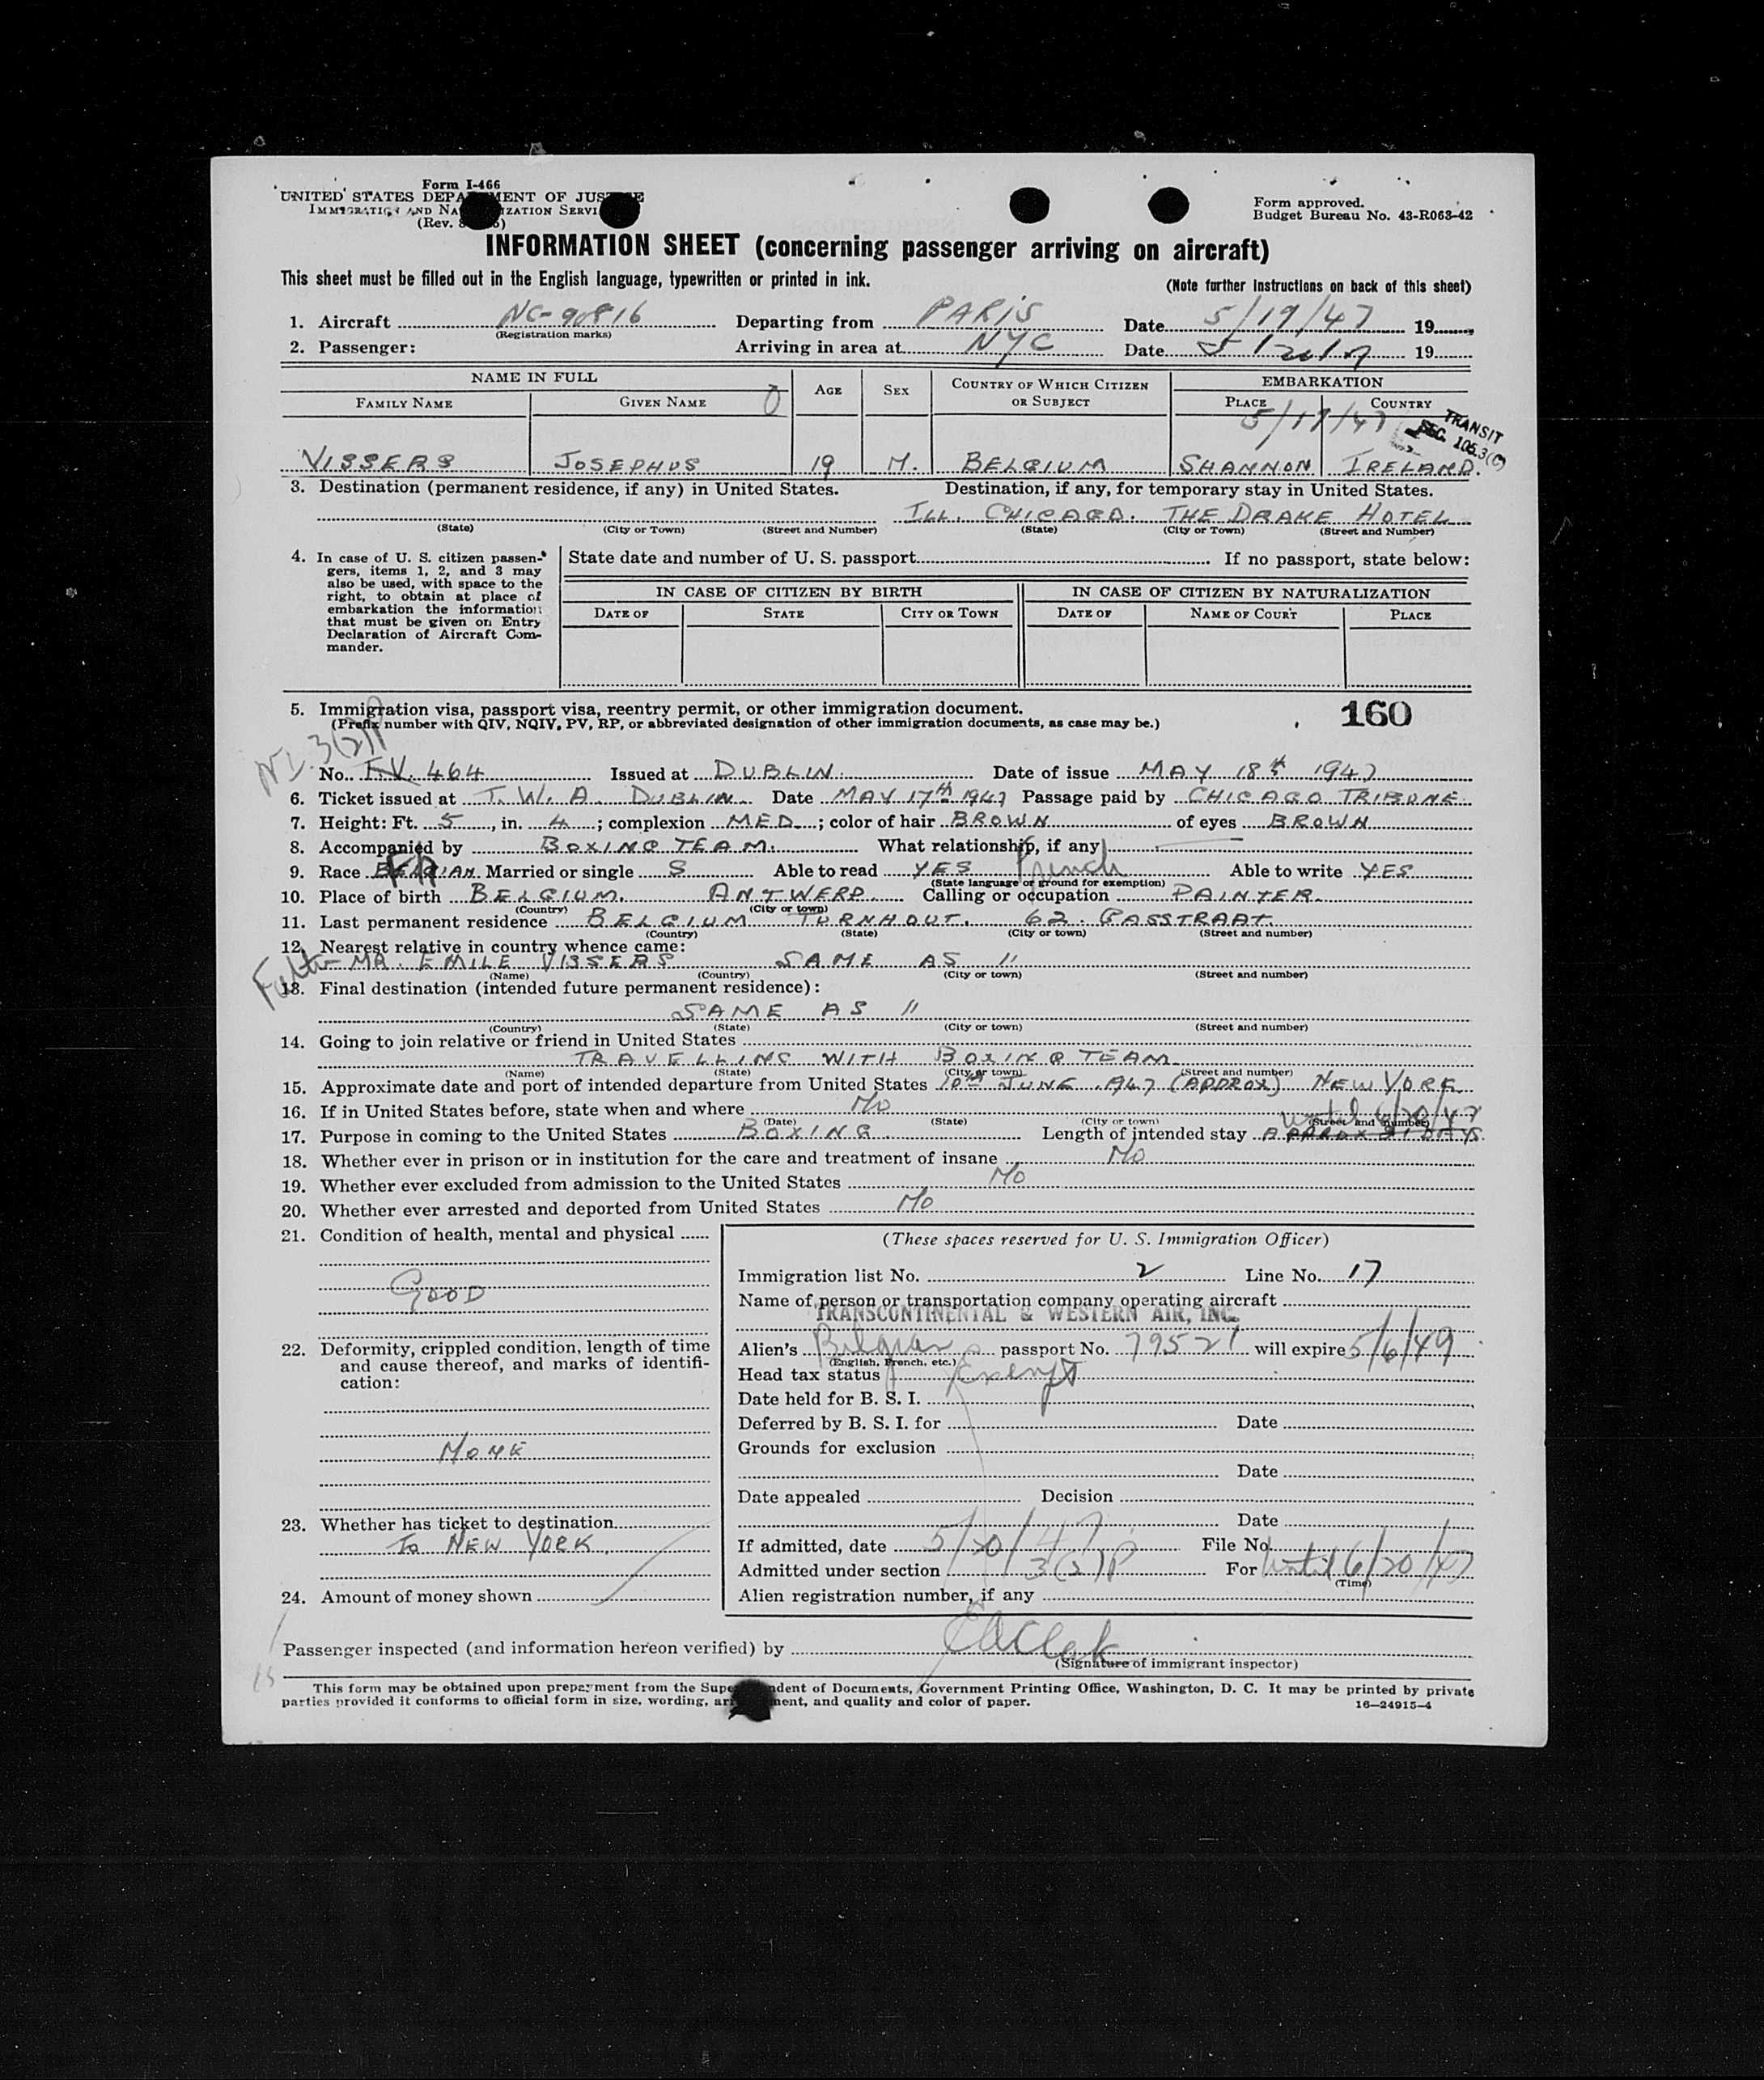 Form I-466
UNITED STATES DEPARTMENT OF JUSTICE
IMMIGRATION AND NATURALIZATION SERVICE
(Rev.
Form approved.
Budget Bureau No. 43-R063-42
INFORMATION SHEET (concerning passenger arriving on aircraft)
This sheet must be filled out in the English language, typewritten or printed in ink. (Note further instructions on back of this sheet)
1. Aircraft NC-90816 Departing from PARIS Date 5/19/47 19
(Registration marks)
2. Passenger: Arriving in area at NYC Date 5/20/47 19
NAME IN FULL AGE SEX COUNTRY OF WHICH CITIZEN OR SUBJECT EMBARKATION
FAMILY NAME GIVEN NAME PLACE COUNTRY
5/19/47 TRANSIT SEC. 105.3(C)
VISSERS JOSEPHUS 19 M. BELGIUM SHANNON IRELAND.
3. Destination (permanent residence, if any) in United States. Destination, if any, for temporary stay in United States.
ILL. CHICAGO. THE DRAKE HOTEL
(State) (City or Town) (Street and Number) (State) (City or Town) (Street and Number)
4. In case of U. S. citizen passengers, items 1, 2, and 3 may also be used, with space to the right, to obtain at place of embarkation the information that must be given on Entry Declaration of Aircraft Commander.
State date and number of U. S. passport If no passport, state below:
IN CASE OF CITIZEN BY BIRTH IN CASE OF CITIZEN BY NATURALIZATION
DATE OF STATE CITY OR TOWN DATE OF NAME OF COURT PLACE
5. Immigration visa, passport visa, reentry permit, or other immigration document.
(Prefix number with QIV, NQIV, PV, RP, or abbreviated designation of other immigration documents, as case may be.)
160
3(2)P
No. T.V. 464 Issued at DUBLIN. Date of issue MAY 18th 1947
6. Ticket issued at T. W. A. DUBLIN. Date MAY 17th 1947 Passage paid by CHICAGO TRIBUNE.
7. Height: Ft. 5, in. 4; complexion MED.; color of hair BROWN of eyes BROWN
8. Accompanied by BOXING TEAM. What relationship, if any
9. Race BELGIAN Married or single S Able to read YES French Able to write YES
(State language or ground for exemption)
10. Place of birth BELGIUM. ANTWERP. Calling or occupation PAINTER.
(Country) (City or town)
11. Last permanent residence BELGIUM TURNHOUT. 62. GASSTRAAT.
(Country) (State) (City or town) (Street and number)
12. Nearest relative in country whence came:
MR. EMILE VISSERS SAME AS 11
(Name) (Country) (City or town) (Street and number)
13. Final destination (intended future permanent residence):
SAME AS 11
(Country) (State) (City or town) (Street and number)
14. Going to join relative or friend in United States
TRAVELLING WITH BOXING TEAM
(Name) (State) (City or town) (Street and number)
15. Approximate date and port of intended departure from United States 10th JUNE 1947 (APPROX) NEW YORK
16. If in United States before, state when and where NO
(Date) (State) (City or town) (Street and number)
until 6/20/47
17. Purpose in coming to the United States BOXING. Length of intended stay APPROX 21 DAYS.
18. Whether ever in prison or in institution for the care and treatment of insane NO
19. Whether ever excluded from admission to the United States NO
20. Whether ever arrested and deported from United States NO
21. Condition of health, mental and physical
GOOD
22. Deformity, crippled condition, length of time and cause thereof, and marks of identification:
NONE
23. Whether has ticket to destination
To NEW YORK
24. Amount of money shown
(These spaces reserved for U. S. Immigration Officer)
Immigration list No. 2 Line No. 17
Name of person or transportation company operating aircraft
TRANSCONTINENTAL & WESTERN AIR, INC.
Alien's Belgian passport No. 79521 will expire 5/6/49
(English, French, etc.)
Head tax status Exempt
Date held for B. S. I.
Deferred by B. S. I. for Date
Grounds for exclusion
Date
Date appealed Decision
Date
If admitted, date 5/20/47 File No.
Admitted under section 3(2)P For until 6/20/47
(Time)
Alien registration number, if any
Passenger inspected (and information hereon verified) by
(Signature of immigrant inspector)
This form may be obtained upon prepayment from the Superintendent of Documents, Government Printing Office, Washington, D. C. It may be printed by private
parties provided it conforms to official form in size, wording, arrangement, and quality and color of paper. 16—24915-4